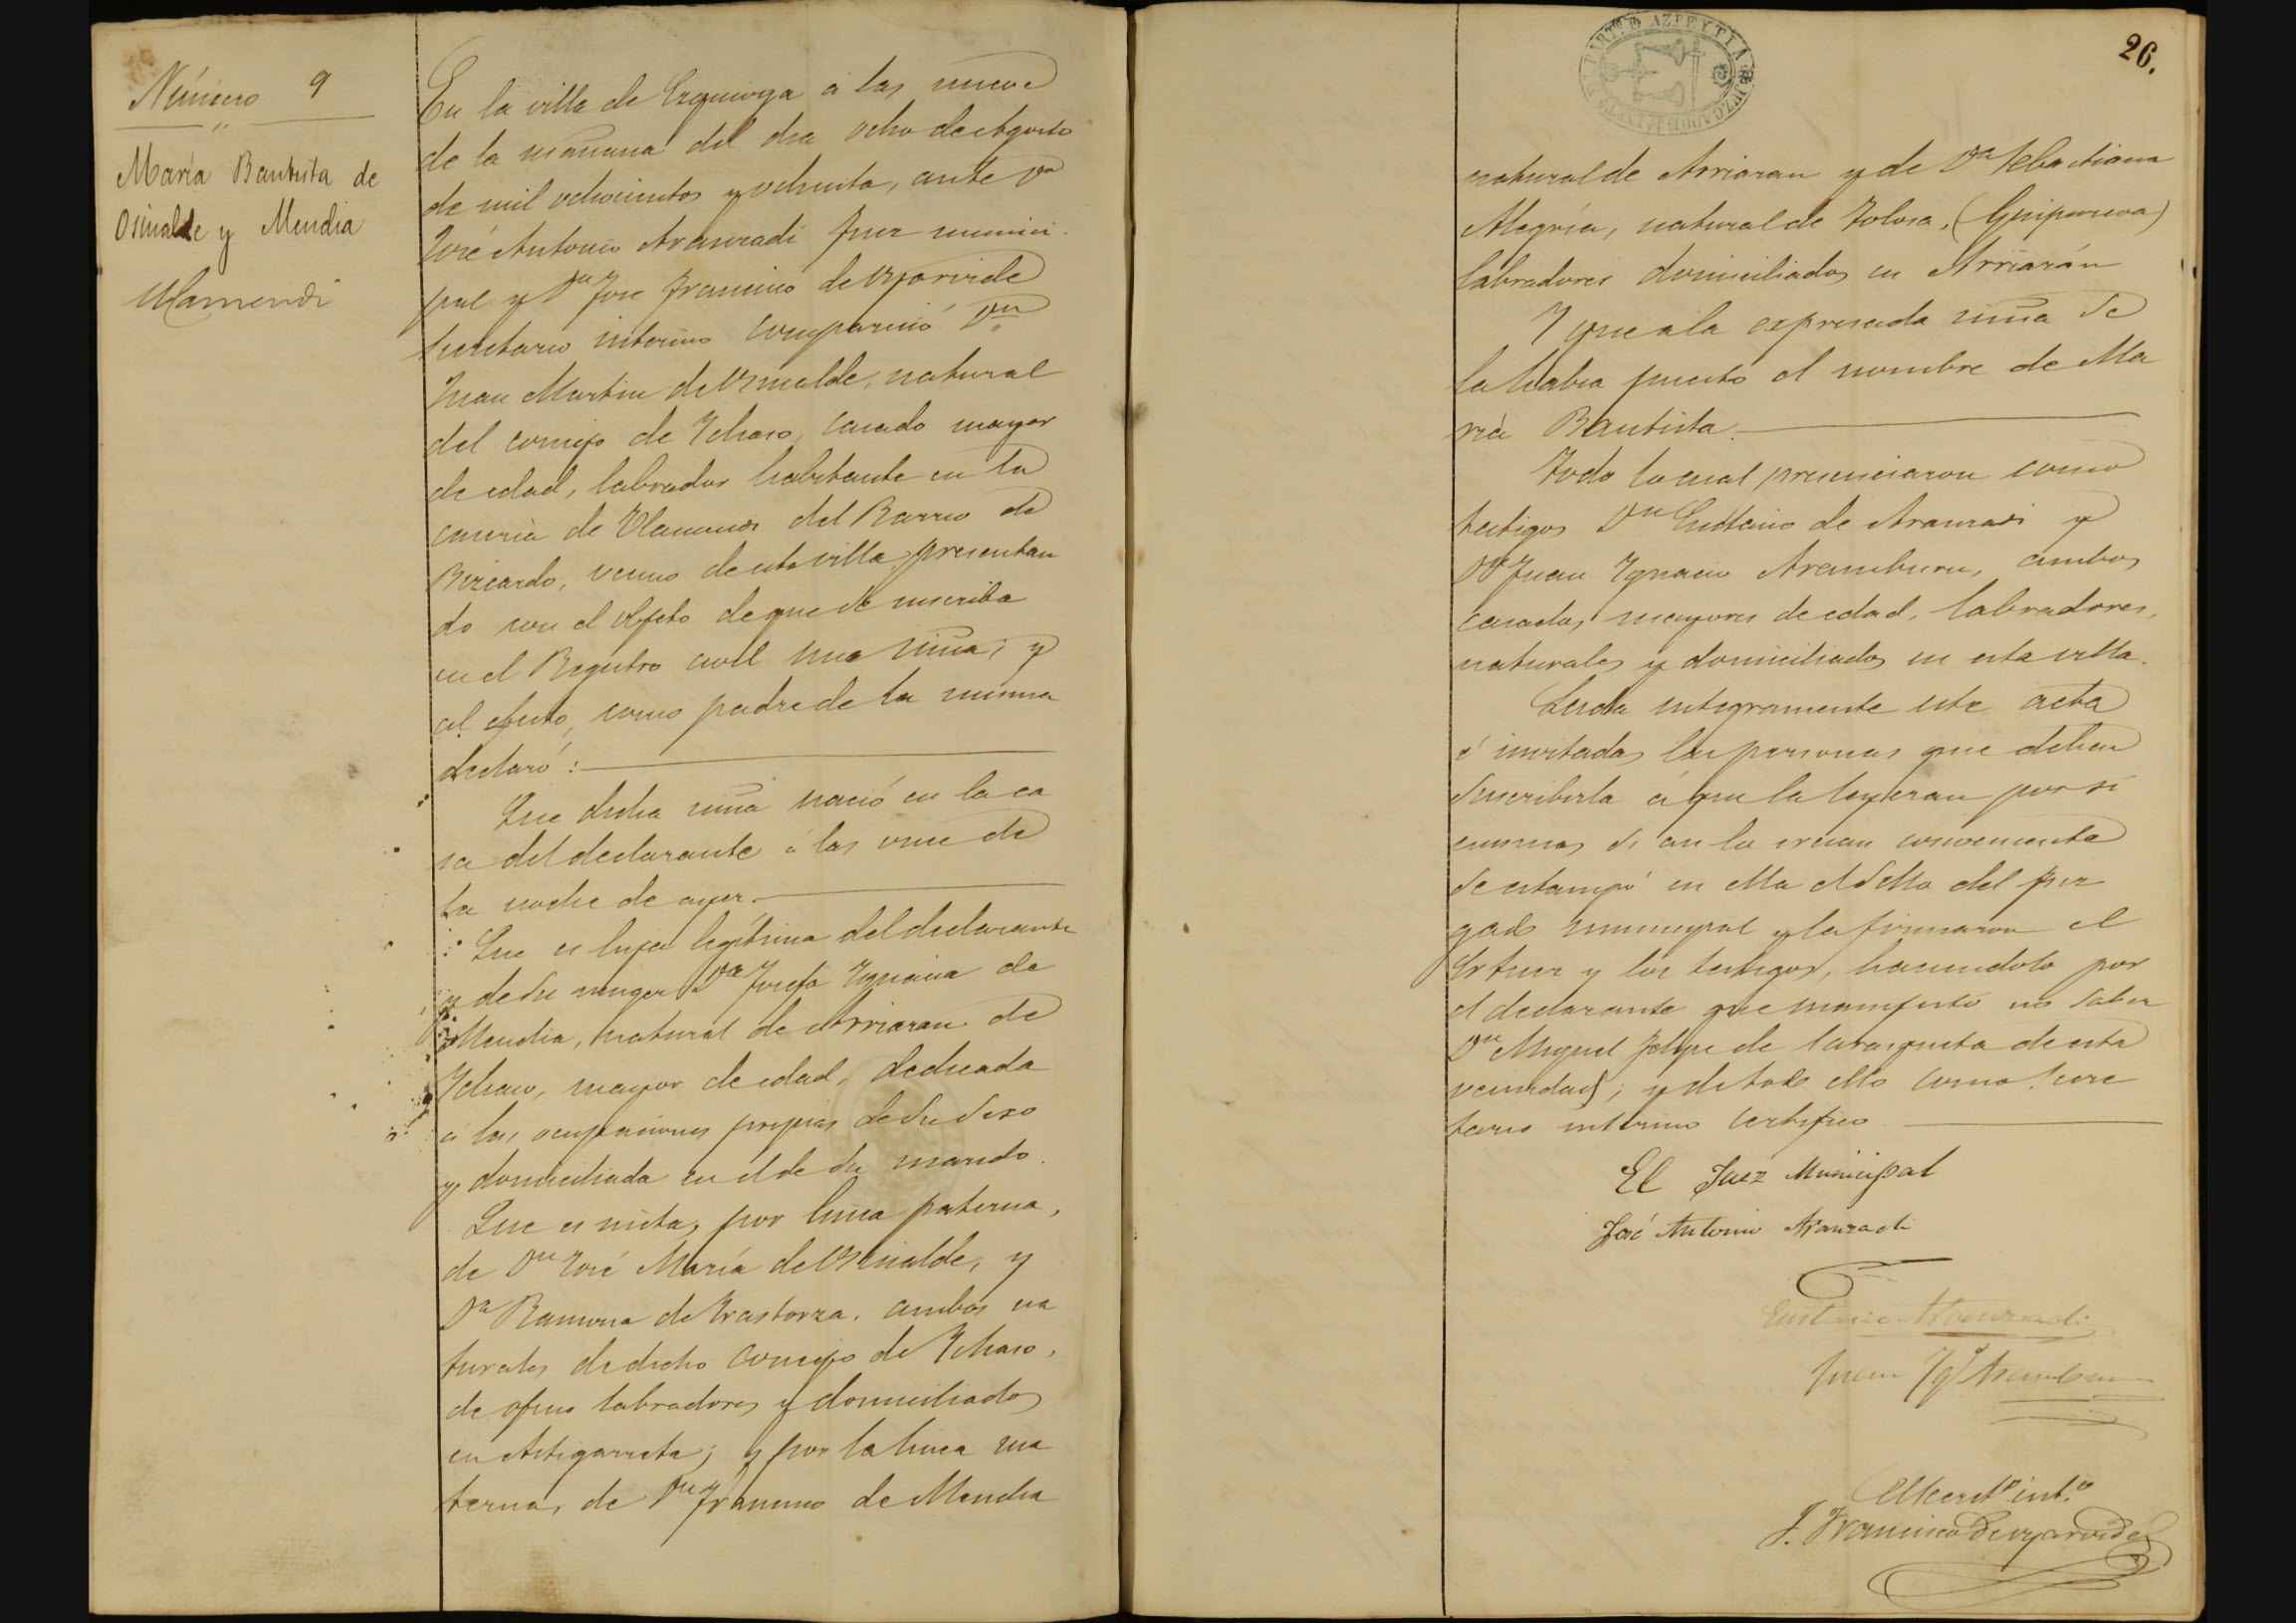 Número 9
María Bautista de
Osinalde y Mendia
Olamendi
En la villa de Ezquioga á las nueve
de la mañana del dia ocho de Agosto
de mil ochocientos y ochenta, ante Dn
José Antonio Aranzadi Juez munici
pal y Dn Jose Francisco de
Secretario interino compareció Dn
Juan Martin de Osinalde, natural
del concejo de Ichaso, casado mayor
de edad, labrador habitante en la
caseria de Olamendi del Barrio de
vecino de esta villa, presentan
do con el objeto de que se inscriba
en el Registro civil una niña; y
al efecto, como padre de la misma
declaró:
Que dicha niña nació en la ca
sa del declarante á las once de
la noche de ayer.
Que es hija legitima del declarante
y de su muger Da Josefa Ignacia de
Mendia, natural de Arriaran de
Ichaso, mayor de edad, dedicada
á las ocupaciones propias de su sexo
y domiciliada en el de su marido.
Que es nieta, por linea paterna,
de Dn José María de Osinalde, y
Da Ramona de Irastorza, ambos na
turales de dicho Concejo de Ichaso,
de oficio labradores y domiciliados
en Astigarreta; y por la linea ma
terna, de Dn Francisco de Mendia
26.
PARTIDO AZPEYTIA
natural de Arriaran y de Da Sebastiana
Alegría, natural de Tolosa, (Guipuzcoa)
labradores domiciliados en Arriarán
Y que a la expresada niña se
la habia puesto el nombre de Ma
ria Bautista.
Todo lo cual presenciaron como
testigos Dn Eustasio de Aranzadi y
Dn Juan Ygnacio Aramburu, ambos
casados, mayores de edad, labradores,
naturales y domiciliados en esta villa.
Leida integramente este acta
é invitadas las personas que deben
suscribirla á que la leyeran por sí
mismas si asi lo creian conveniente
se estampó en ella el sello del Juz
gado municipal y la firmaron el
Sr Juez y los testigos, haciendolo por
el declarante que manifestó no saber
Dn Miguel Felipe de de esta
vecindad; y de todo ello como Secre
tario interino certifico
El Juez Municipal
José Antonio Aranzadi
Eustasio Aranzadi
Juan Ygo Aramburu
El Secreto into
J. Francisco de